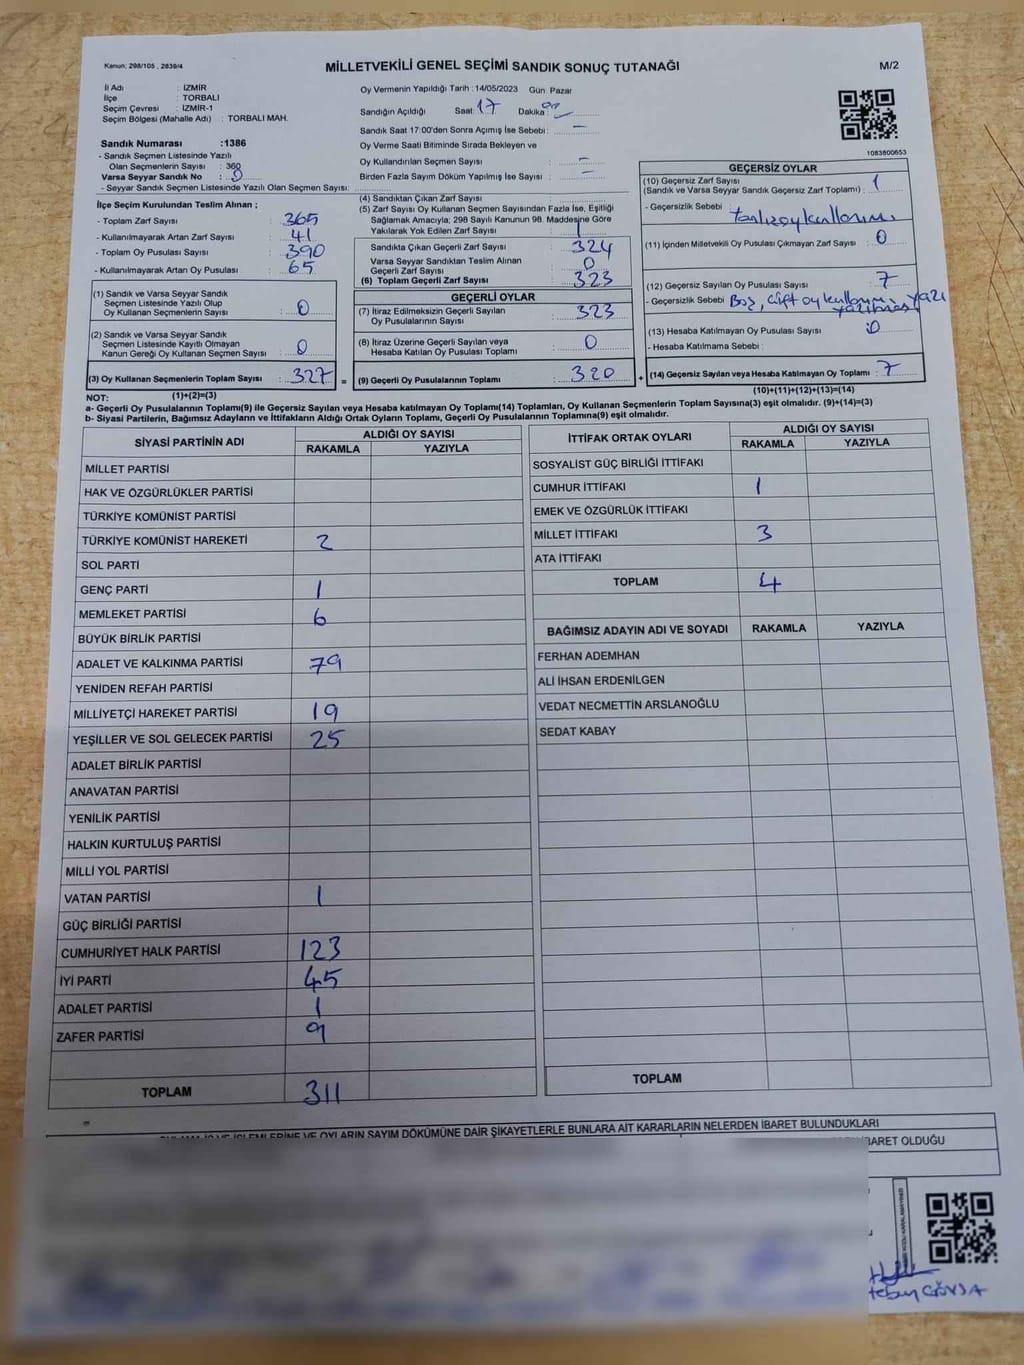 Kanun: 298/105 , 2839/4
MİLLETVEKİLİ GENEL SEÇİMİ SANDIK SONUÇ TUTANAĞI
M/2
İl Adı : İZMİR
İlçe : TORBALI
Seçim Çevresi : İZMİR-1
Seçim Bölgesi (Mahalle Adı) : TORBALI MAH.
Sandık Numarası :1386
- Sandık Seçmen Listesinde Yazılı
Olan Seçmenlerin Sayısı : 360
Varsa Seyyar Sandık No : 0
- Seyyar Sandık Seçmen Listesinde Yazılı Olan Seçmen Sayısı:
İlçe Seçim Kurulundan Teslim Alınan ;
- Toplam Zarf Sayısı : 365
- Kullanılmayarak Artan Zarf Sayısı : 41
- Toplam Oy Pusulası Sayısı : 390
- Kullanılmayarak Artan Oy Pusulası : 65
(1) Sandık ve Varsa Seyyar Sandık
Seçmen Listesinde Yazılı Olup
Oy Kullanan Seçmenlerin Sayısı : 0
(2) Sandık ve Varsa Seyyar Sandık
Seçmen Listesinde Kayıtlı Olmayan
Kanun Gereği Oy Kullanan Seçmen Sayısı : 0
(3) Oy Kullanan Seçmenlerin Toplam Sayısı : 327 =
Oy Vermenin Yapıldığı Tarih : 14/05/2023 Gün: Pazar
Sandığın Açıldığı Saat: 17 Dakika:
Sandık Saat 17:00'den Sonra Açımış İse Sebebi : -
Oy Verme Saati Bitiminde Sırada Bekleyen ve
Oy Kullandırılan Seçmen Sayısı : -
Birden Fazla Sayım Döküm Yapılmış İse Sayısı : -
(4) Sandıktan Çıkan Zarf Sayısı :
(5) Zarf Sayısı Oy Kullanan Seçmen Sayısından Fazla İse, Eşitliği
Sağlamak Amacıyla; 298 Sayılı Kanunun 98. Maddesine Göre
Yakılarak Yok Edilen Zarf Sayısı : 1
Sandıkta Çıkan Geçerli Zarf Sayısı : 324
Varsa Seyyar Sandıktan Teslim Alınan
Geçerli Zarf Sayısı : 0
(6) Toplam Geçerli Zarf Sayısı : 323
GEÇERLİ OYLAR
(7) İtiraz Edilmeksizin Geçerli Sayılan
Oy Pusulalarının Sayısı : 323
(8) İtiraz Üzerine Geçerli Sayılan veya
Hesaba Katılan Oy Pusulası Toplamı : 0
(9) Geçerli Oy Pusulalarının Toplamı : 320 +
1083800653
GEÇERSİZ OYLAR
(10) Geçersiz Zarf Sayısı
(Sandık ve Varsa Seyyar Sandık Geçersiz Zarf Toplamı) : 1
- Geçersizlik Sebebi
(11) İçinden Milletvekili Oy Pusulası Çıkmayan Zarf Sayısı : 0
(12) Geçersiz Sayılan Oy Pusulası Sayısı : 7
- Geçersizlik Sebebi Boş, Çift oy kullanımı, yazı
yazılması
(13) Hesaba Katılmayan Oy Pusulası Sayısı : 0
- Hesaba Katılmama Sebebi :
(14) Geçersiz Sayılan veya Hesaba Katılmayan Oy Toplamı : 7
NOT: (1)+(2)=(3) (10)+(11)+(12)+(13)=(14)
a- Geçerli Oy Pusulalarının Toplamı(9) ile Geçersiz Sayılan veya Hesaba katılmayan Oy Toplamı(14) Toplamları, Oy Kullanan Seçmenlerin Toplam Sayısına(3) eşit olmalıdır. (9)+(14)=(3)
b- Siyasi Partilerin, Bağımsız Adayların ve İttifakların Aldığı Ortak Oyların Toplamı, Geçerli Oy Pusulalarının Toplamına(9) eşit olmalıdır.
SİYASİ PARTİNİN ADI ALDIĞI OY SAYISI
RAKAMLA YAZIYLA
MİLLET PARTİSİ
HAK VE ÖZGÜRLÜKLER PARTİSİ
TÜRKİYE KOMÜNİST PARTİSİ
TÜRKİYE KOMÜNİST HAREKETİ 2
SOL PARTİ
GENÇ PARTİ 1
MEMLEKET PARTİSİ 6
BÜYÜK BİRLİK PARTİSİ
ADALET VE KALKINMA PARTİSİ 79
YENİDEN REFAH PARTİSİ
MİLLİYETÇİ HAREKET PARTİSİ 19
YEŞİLLER VE SOL GELECEK PARTİSİ 25
ADALET BİRLİK PARTİSİ
ANAVATAN PARTİSİ
YENİLİK PARTİSİ
HALKIN KURTULUŞ PARTİSİ
MİLLİ YOL PARTİSİ
VATAN PARTİSİ 1
GÜÇ BİRLİĞİ PARTİSİ
CUMHURİYET HALK PARTİSİ 123
İYİ PARTİ 45
ADALET PARTİSİ 1
ZAFER PARTİSİ 9
TOPLAM 311
İTTİFAK ORTAK OYLARI ALDIĞI OY SAYISI
RAKAMLA YAZIYLA
SOSYALİST GÜÇ BİRLİĞİ İTTİFAKI
CUMHUR İTTİFAKI 1
EMEK VE ÖZGÜRLÜK İTTİFAKI
MİLLET İTTİFAKI 3
ATA İTTİFAKI
TOPLAM 4
BAĞIMSIZ ADAYIN ADI VE SOYADI RAKAMLA YAZIYLA
FERHAN ADEMHAN
ALİ İHSAN ERDENİLGEN
VEDAT NECMETTİN ARSLANOĞLU
SEDAT KABAY
TOPLAM
İŞLEMLERİNE VE OYLARIN SAYIM DÖKÜMÜNE DAİR ŞİKAYETLERLE BUNLARA AİT KARARLARIN NELERDEN İBARET BULUNDUKLARI
İBARET OLDUĞU